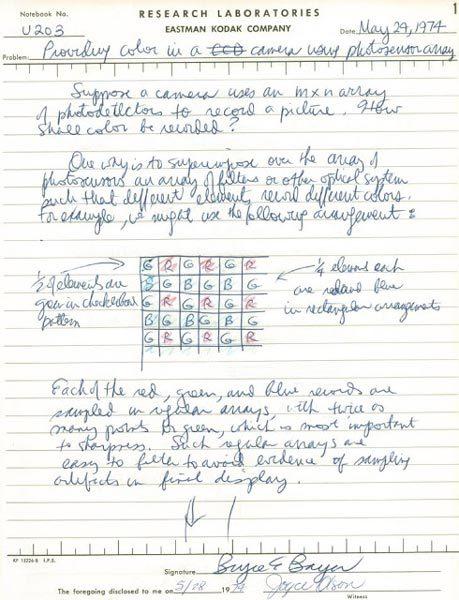 Notebook No. RESEARCH LABORATORIES 1
U203 EASTMAN KODAK COMPANY Date May 29, 1974
Problem: Providing color in a CCD camera using photosensor array
Suppose a camera uses an m x n array
of photodetectors to record a picture. How
shall color be recorded?
One way is to superimpose over the array of
photosensors an array of filters or other optical system
such that different elements record different colors.
For example, we might use the following arrangement:
1/2 of elements are
green in checkerboard
pattern
G R G R G R
B G B G B G
G R G R G R
B G B G B G
G R G R G R
1/4 elements each
are red and blue
in rectangular arrangements
Each of the red, green, and blue records are
sampled in regular arrays, with twice as
many points for green, which is most important
to sharpness. Such regular arrays are
easy to filter to avoid evidence of sampling
artifacts in final display.
KP 15226-B I.P.S.
Signature Bryce E Bayer
The foregoing disclosed to me on 5/28 19 74 Joyce Olson
Witness